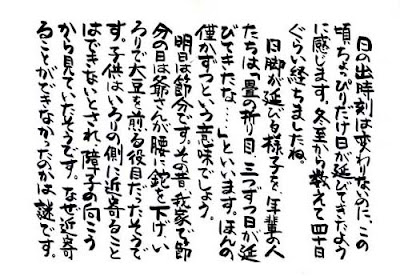 日の出時刻は変わりないのに、この
頃、ちょっぴりだけ日が延びてきたよう
に感じます。冬至から数えて四十日
ぐらい経ちましたね。
日脚が延びる様子を、年輩の人
たちは「畳の折り目、三つずつ日が延
びてきたな…」といいます。ほんの
僅かずつという意味でしょう。
明日は節分です。その昔、我家で節
分の日は爺さんが腰に鉈を下げ、い
ろりで大豆を煎る役目だったそうで
す。子供はいろりの側に近寄ること
はできないとされ、障子の向こう
から見ていたそうです。なぜ近寄
ることができなかったのかは謎です。